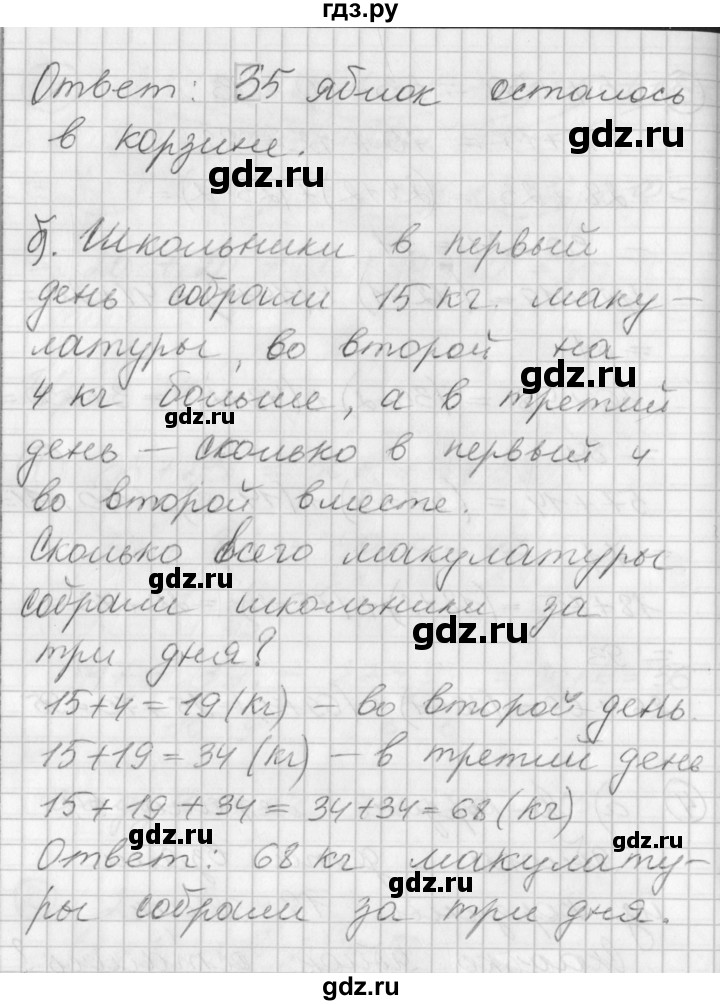 гдз.ру
Ответ: 35 яблок осталось
gdz.ru
в корзине.
gdz.ru
б). Школьники в первый
день собрали 15 кг маку-
gdz.ru
латуры, во второй на
gdz.ru
4 кг больше, а в третий
gdz.ru
день – сколько в первый и
во второй вместе.
Сколько всего макулатуры
gdz.ru
собрали школьники за
gdz.ru
три дня?
15+4=19(кг) – во второй день.
15+19=34(кг) – в третий день
gdz.ru
15+19+34=34+34=68(кг)
gdz.ru
gdz.ru
Ответ: 68 кг макулату-
gdz.ru
ры собрали за три дня.
gdz.ru